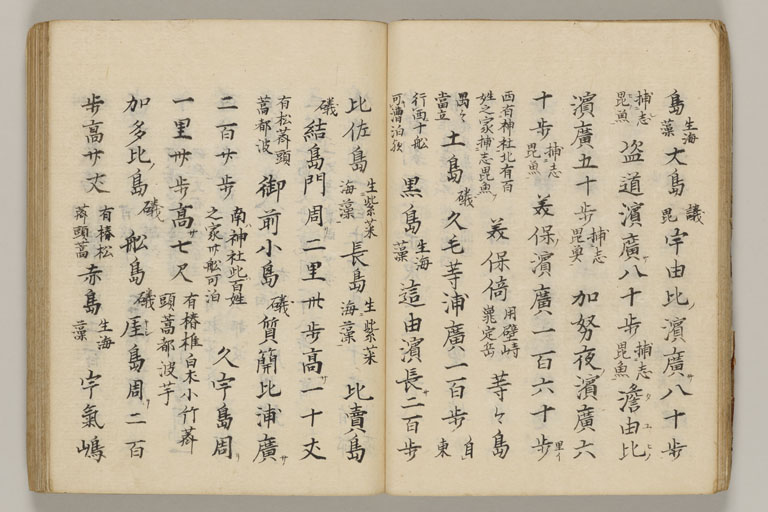 島 生海藻 大島 議毘 宇由比濱廣八十歩
捕志毘魚 盗道濱廣八十歩 捕志毘魚 澹由比
濱廣五十歩 捕志毘魚 加努夜濱廣六
十歩 捕志毘魚 美保濱廣一百六十歩
西有神社北有百姓之家捕志毘魚 美保 用壁峙 定岳 等々島
禺々當立 土島 礒 久毛等浦廣一百歩 自東
行西十舩可泊 黒島 生海藻 這由濱長二百歩
比佐島 生紫菜海藻 長島 生紫菜海藻 比賣島
礒 結島門周二里卅歩高一十丈
有松薺頭蒿都波 御前小島 礒 質簡比浦廣
二百廾歩 南神社北百姓之家卅舩可泊 久宇島周
一里卅歩高七尺 有椿椎白朮小竹薺頭蒿都波芋
加多比島 礒 舩島 礒 屋島周二百
歩高廾丈 有椿松薺頭蒿 赤島 生海藻 宇氣嶋